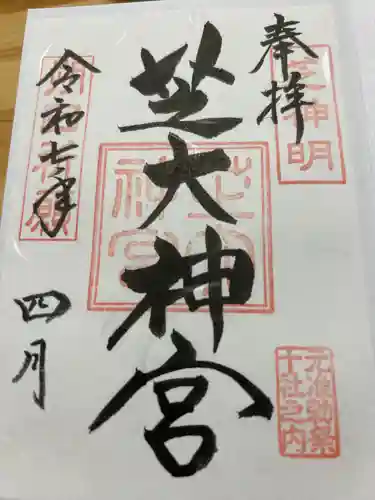 奉拝
芝神明
芝大神宮
元准勅祭
十社之内
令和七年
四月